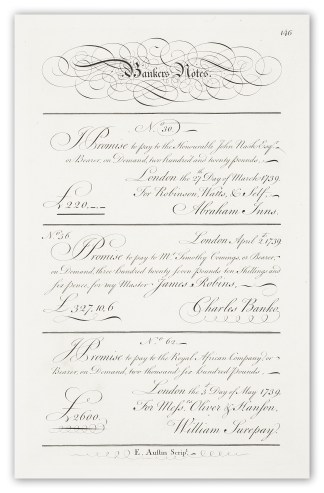 146
Bankers Notes.
No. 30.
I Promise to pay to the Honourable John Nash Esqr.
or Bearer, on Demand, two hundred and twenty Pounds.
London the 27th Day of March 1739.
For Robinson, Watts, & Self.
£220,—,— Abraham Inns.
No. 56. London April 2d. 1739
I Promise to pay to Mr. Timothy Comings, or Bearer,
on Demand, three hundred twenty seven pounds ten Shillings and
six pence, for my Master James Robins,
£327,10,6 Charles Banke,
No. 62.
I Promise to pay to the Royal African Company, or
Bearer, on Demand, two thousand six hundred pounds.
London the 5th Day of May 1739.
£2600, For Messrs. Oliver & Hanson,
William Surepay.
E. Austin Script.